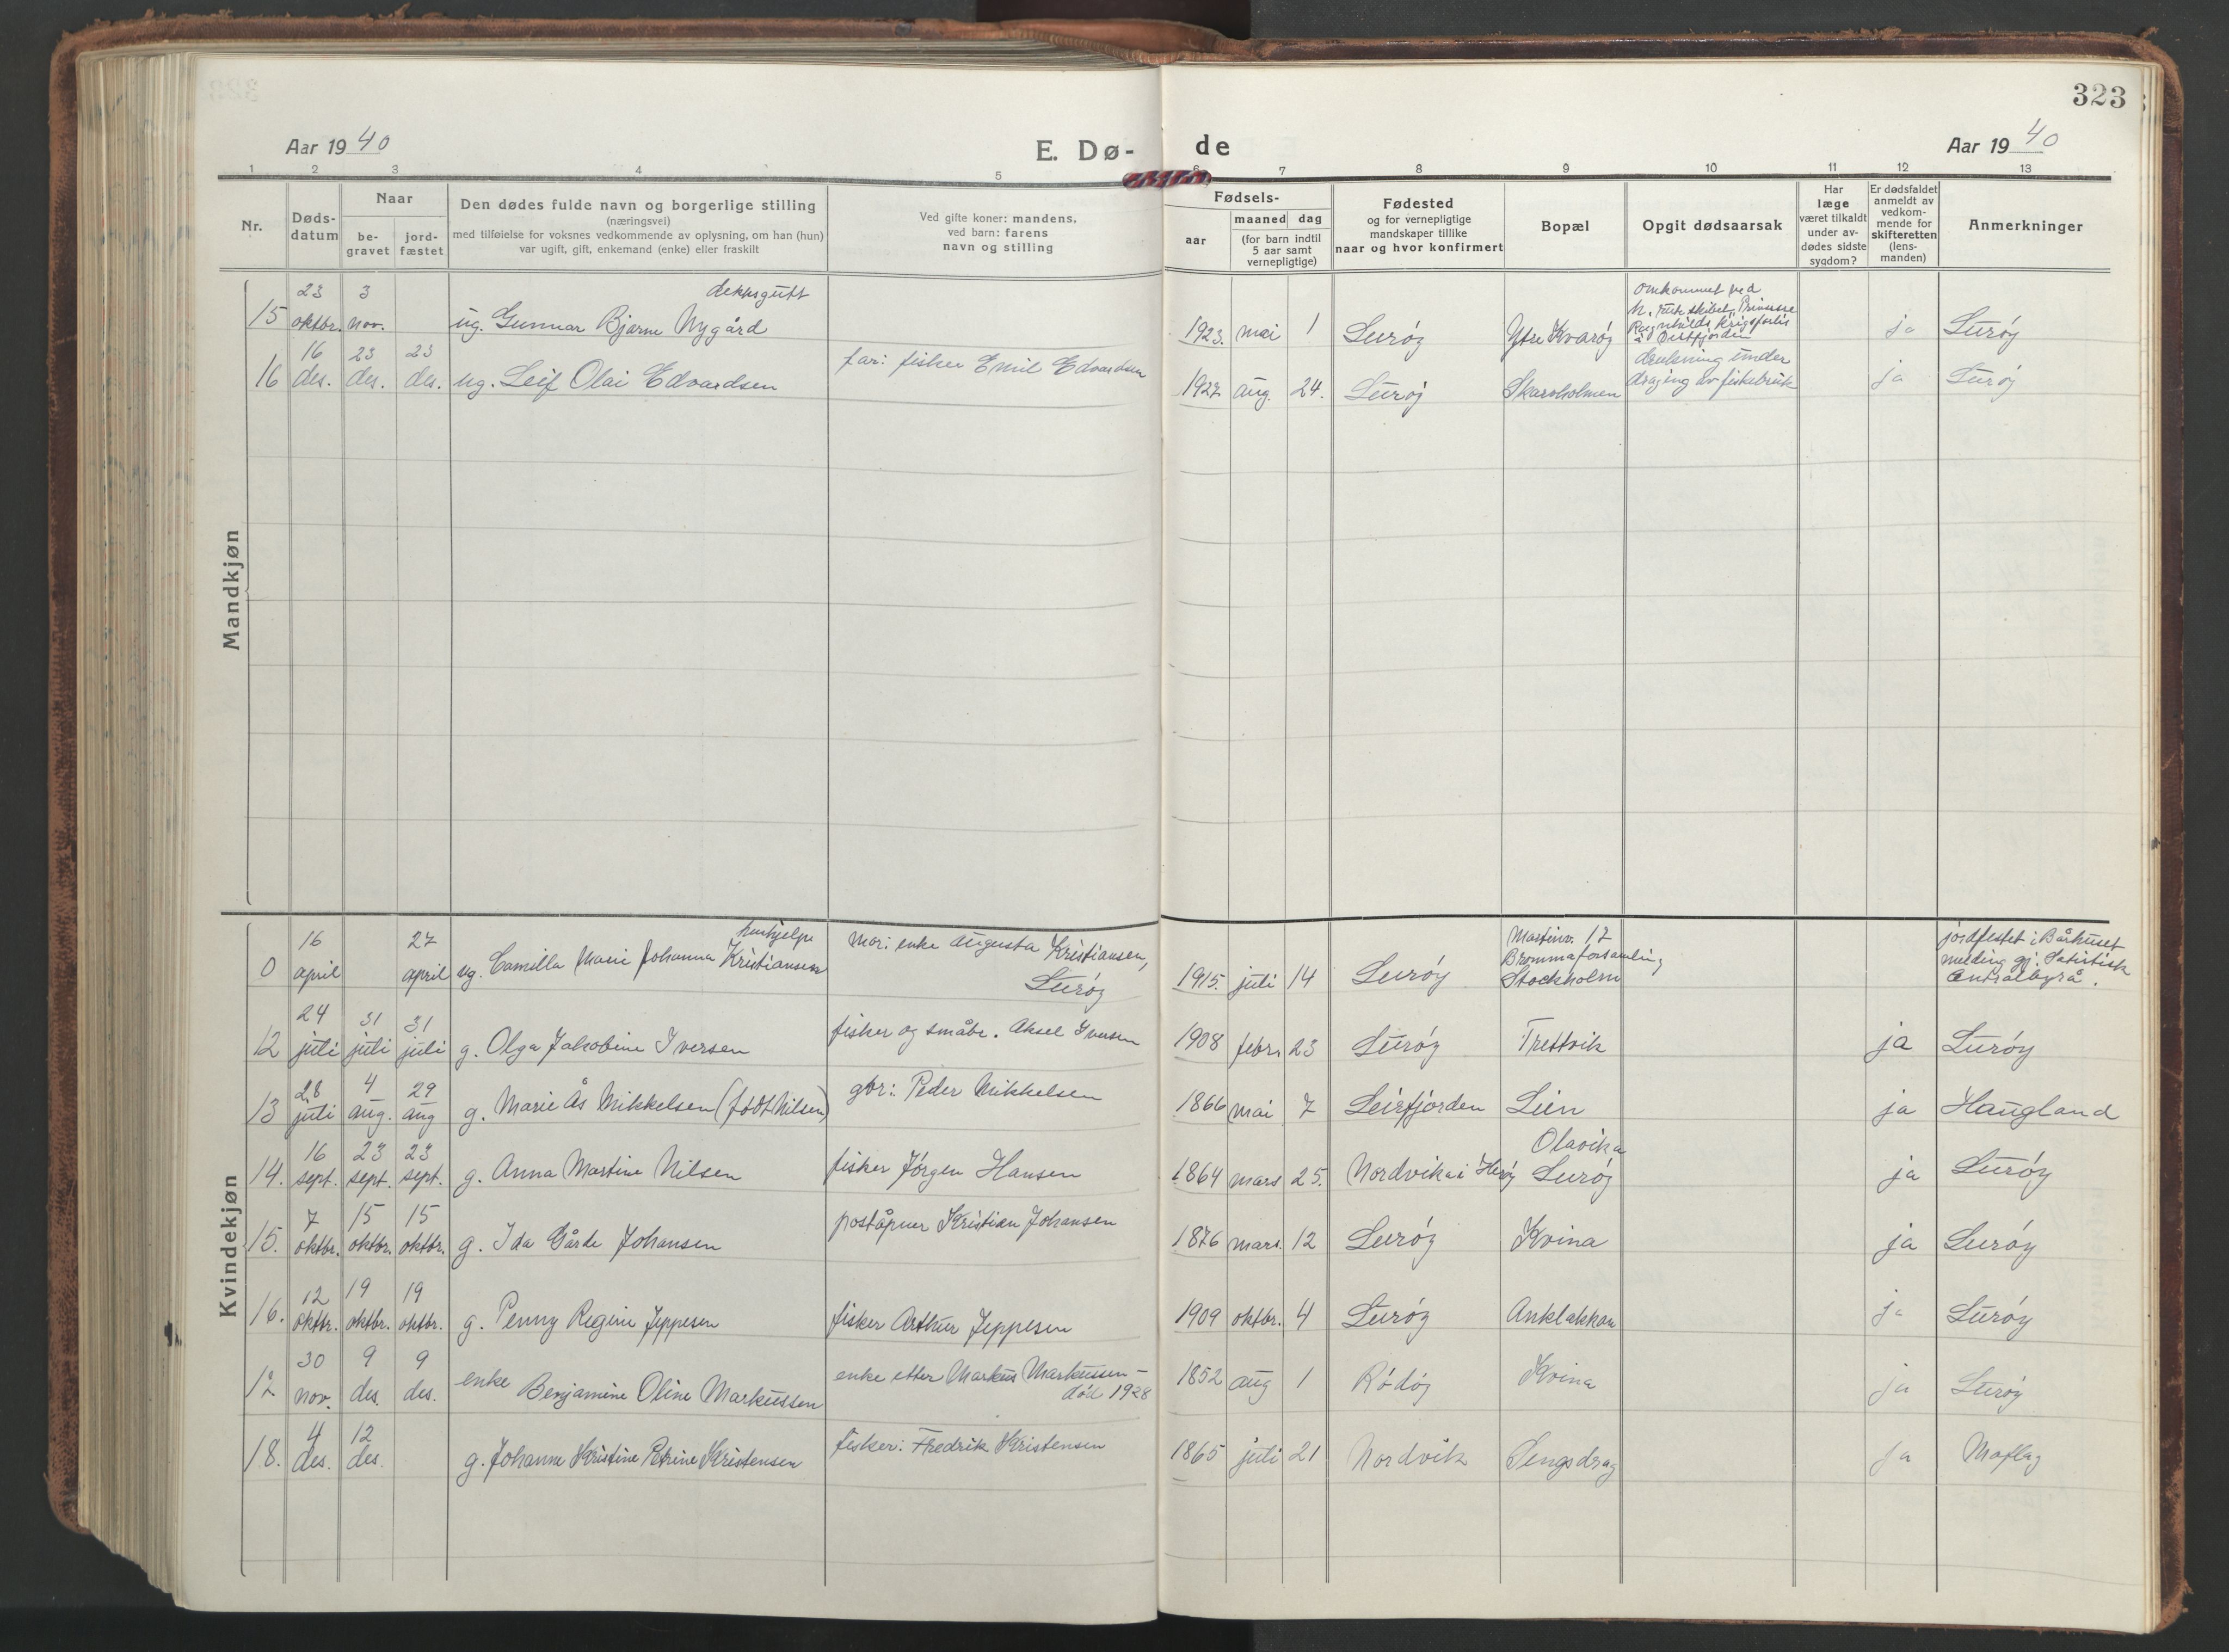 323
Aar 1940
E. Dø-
de
Aar 1940
1 2 3 4 5 6 7 8 9 10 11 12 13
Nr.
Døds-
datum
Naar
be-
gravet
jord-
fæstet
Den dødes fulde navn og borgerlige stilling
(næringsvei)
med tilføielse for voksnes vedkommende av oplysning, om han (hun)
var ugift, gift, enkemand (enke) eller fraskilt
Ved gifte koner: mandens,
ved barn: farens
navn og stilling
Fødsels-
aar
maaned dag
(for barn indtil
5 aar samt
vernepligtige)
Fødested
og for vernepligtige
mandskaper tillike
naar og hvor konfirmert
Bopæl
Opgit dødsaarsak
Har
læge
været tilkaldt
under av-
dødes sidste
sygdom?
Er dødsfaldet
anmeldt av
vedkom-
mende for
skifteretten
(lens-
manden)
Anmerkninger
Mandkjøn
15 23 oktbr. 3 nov. ug. Gunnar Bjarne Nygård dekksgutt 1923. mai 1 Lurøy Ytre Kvarøy omkommet ved
h. ruteskibet „Prinsesse
Ragnhilds krigsforlis
i Vestfjorden ja Lurøy
16 16 des. 23 des. 23 des. ug. Leif Olai Edvardsen far: fisker Emil Edvardsen 1927 aug. 24. Lurøy Skarvholmen drukning under
draging av fiskebruk ja Lurøy
Kvindekjøn
0 16 april 27 april ug. Camilla Marie Johanna Kristiansen hushjelp mor: enke Augusta Kristiansen,
Lurøy 1915. juli 14 Lurøy Martinv. 17
Bromma forsamling
Stockholm jordfestet i Bårhuset
melding gj. Statistisk
Centralbyrå.
12 24 juli 31 juli 31 juli g. Olga Jakobine Iversen fisker og småbr. Aksel Iversen 1908 febr. 23 Lurøy Trettvik ja Lurøy
13 28 juli 4 aug. 29 aug g. Marie Ås Mikkelsen (født Nilsen) gbr: Peder Mikkelsen 1866 mai 7 Leirfjorden Lien ja Haugland
14. 16 sept. 23 sept. 23 sept. g. Anna Martine Nilsen fisker Jørgen Hansen 1864 mars 25. Nordvika i Herøy Olavika
Lurøy ja Lurøy
15. 7 oktbr. 15 oktbr. 15 oktbr. g. Ida Gårde Johansen poståpner Kristian Johansen 1876 mars. 12 Lurøy Kvina ja Lurøy
16. 12 oktbr. 19 oktbr. 19 oktbr. g. Penny Regine Jeppesen fisker Arthur Jeppesen 1909 oktbr. 4 Lurøy Anklakkan ja Lurøy
12 30 nov. 9 des. 9 des. enke Benjamine Oline Markussen enke etter Markus Markussen –
død 1928 1852 aug 1 Rødøy Kvina ja Lurøy
18. 4 des. 12 des. g. Johanne Kristine Petrine Kristensen fisker: Fredrik Kristensen 1865 juli 21 Nordvik Sengsdrag ja Moflag